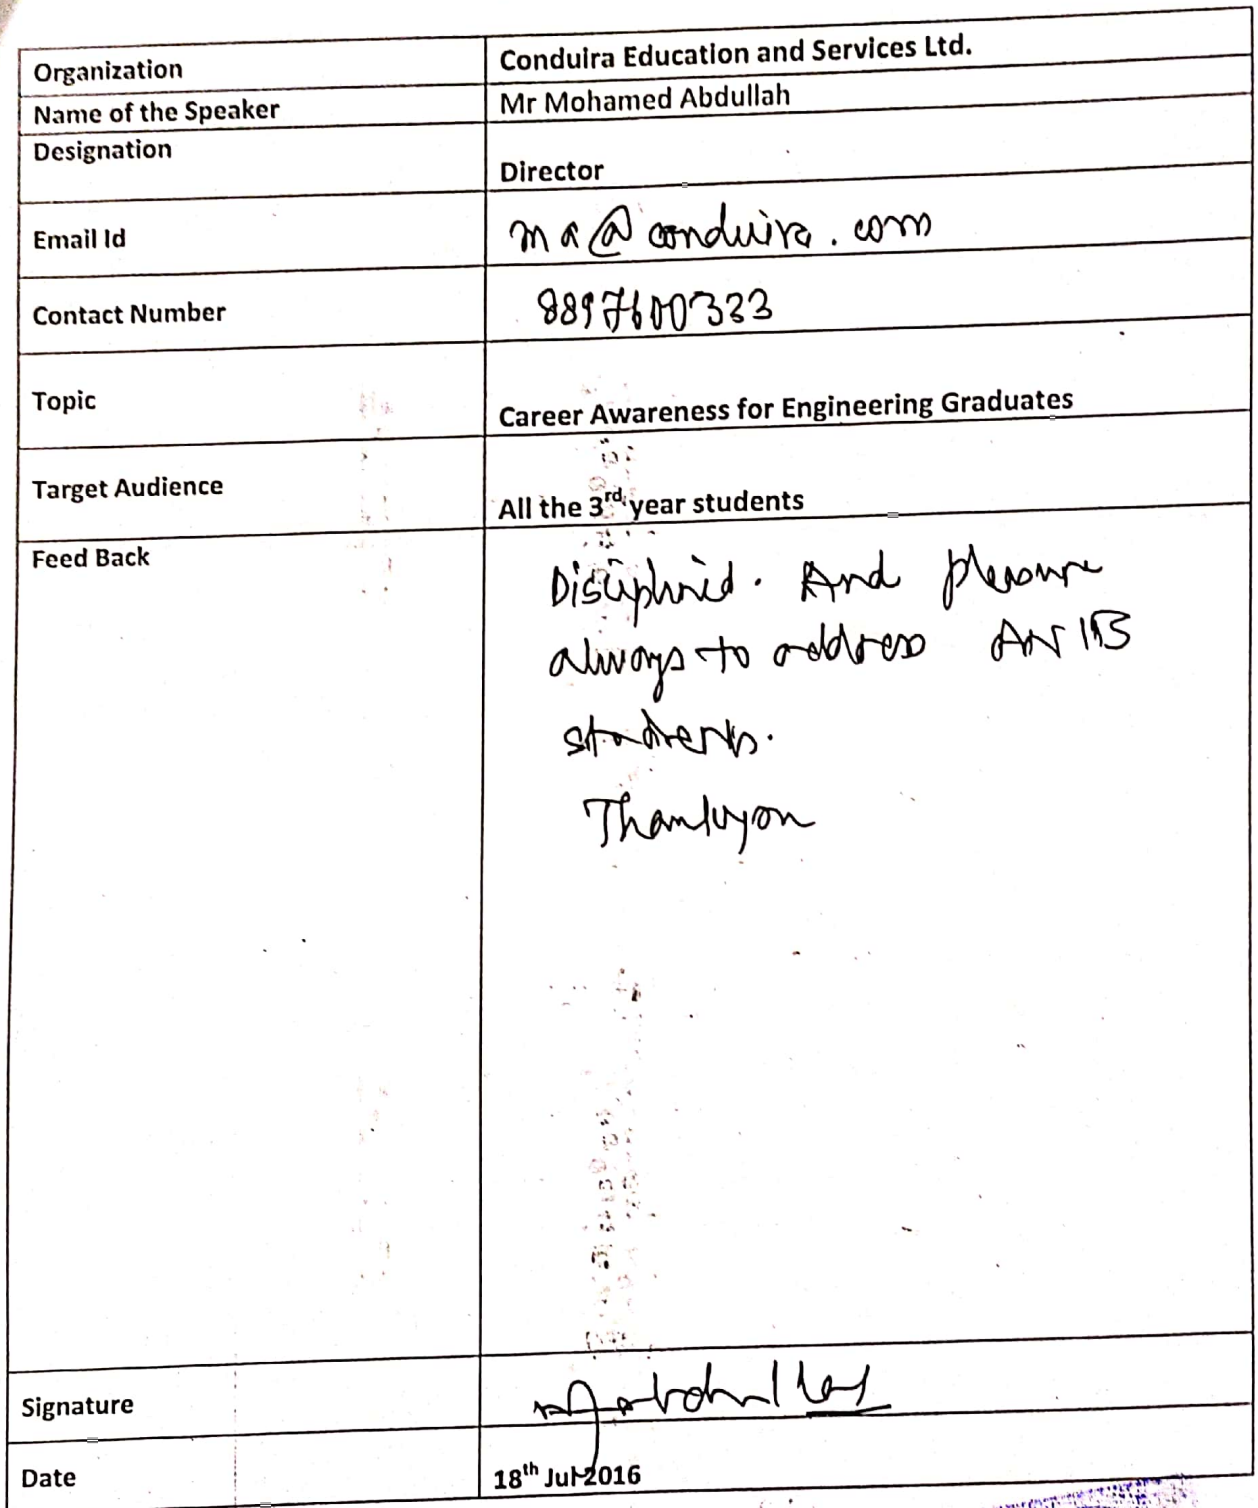 Organization Conduira Education and Services Ltd.
Name of the Speaker Mr Mohamed Abdullah
Designation Director
Email Id ma@conduira.com
Contact Number 8897600333
Topic Career Awareness for Engineering Graduates
Target Audience All the 3rd year students
Feed Back
Disciplined. And pleasure
always to address
students.
Thankyou
Signature
Date 18th Jul-2016